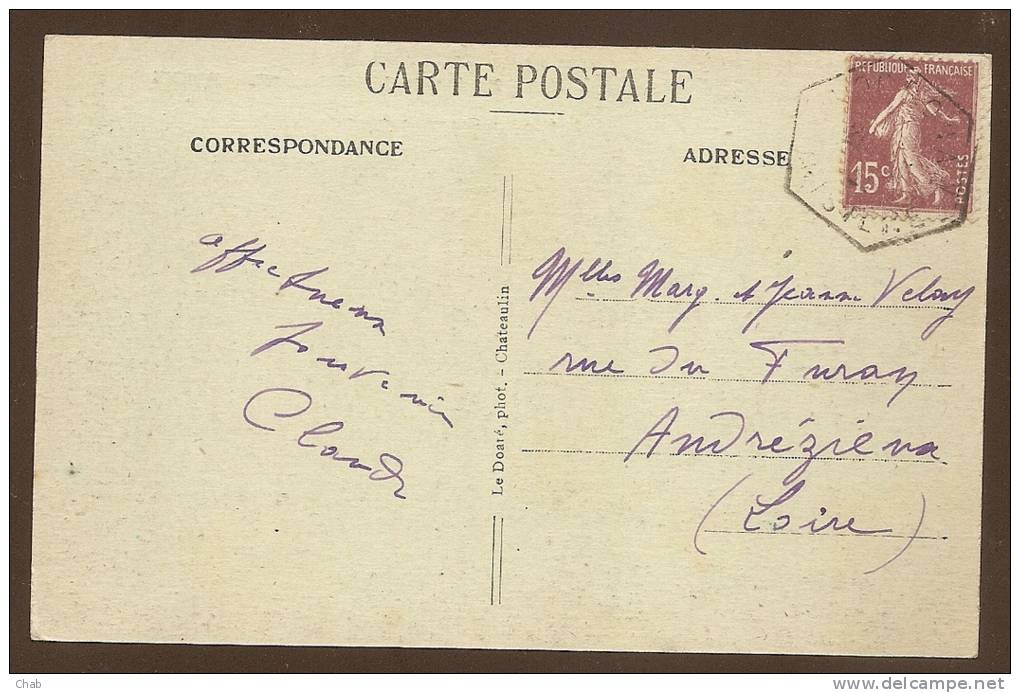 CARTE POSTALE
CORRESPONDANCE
ADRESSE
REPUBLIQUE FRANÇAISE
15c
POSTES
affectueux
souvenir
Claude
Le Doaré, phot. - Chateaulin
Mlles Marg. et Jeanne Velay
rue du Furan
Andrézieux
(Loire)
Chab
www.delcampe.net